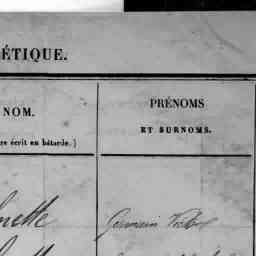 ÉTIQUE.
NOM.
re écrit en bâtarde.)
PRÉNOMS
ET SURNOMS.
Germain